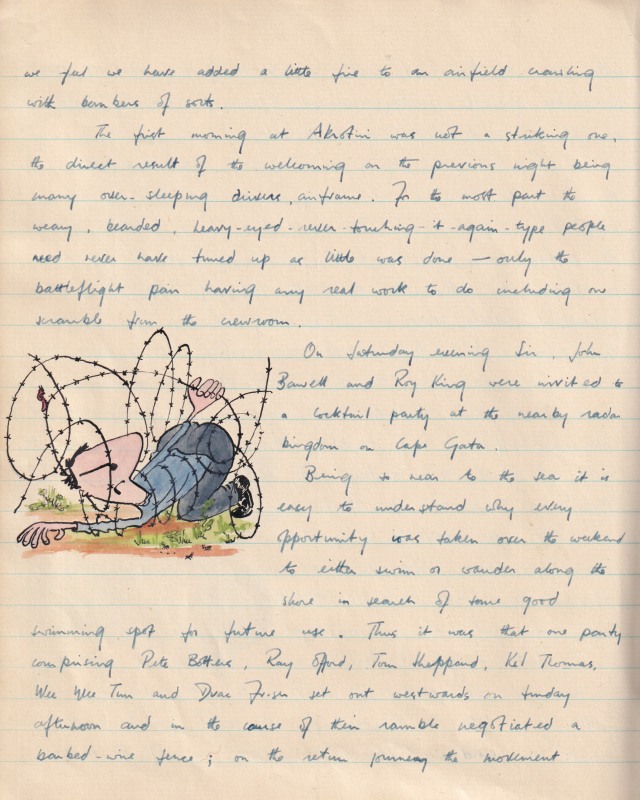 we feel we have added a little fire to an airfield crawling
with bombers of sorts.
The first morning at Akrotiri was not a striking one,
the direct result of the welcoming on the previous night being
many over-sleeping drivers, airframe. For the most part the
weary, bearded, heavy-eyed-never-touching-it-again-type people
need never have turned up as little was done — only the
battleflight pair having any real work to do including one
scramble from the crewroom.
On Saturday evening Sir, John
Barwell and Roy King were invited to
a cocktail party at the nearby radar
kingdom on Cape Gata.
Being so near to the sea it is
easy to understand why every
opportunity was taken over the weekend
to either swim or wander along the
shore in search of some good
swimming spot for future use. Thus it was that one party
comprising Pete Botters, Ray Offord, Tom Sheppard, Kel Thomas,
Wee Wee Tim and set out westwards on Sunday
afternoon and in the course of their ramble negotiated a
barbed-wire fence; on the return journey the movement